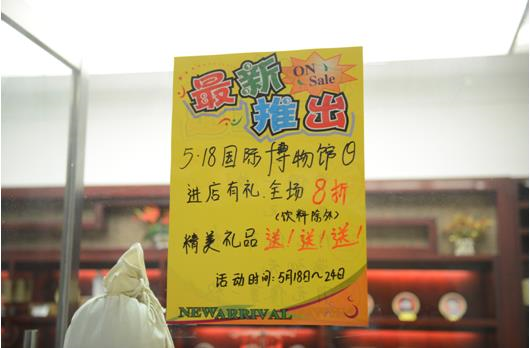 最新
ON
Sale
推出
5·18国际博物馆日
进店有礼.全场8折
(饮料除外)
精美礼品送!送!送!
活动时间:5月18日~24日
NEWARRIVAL